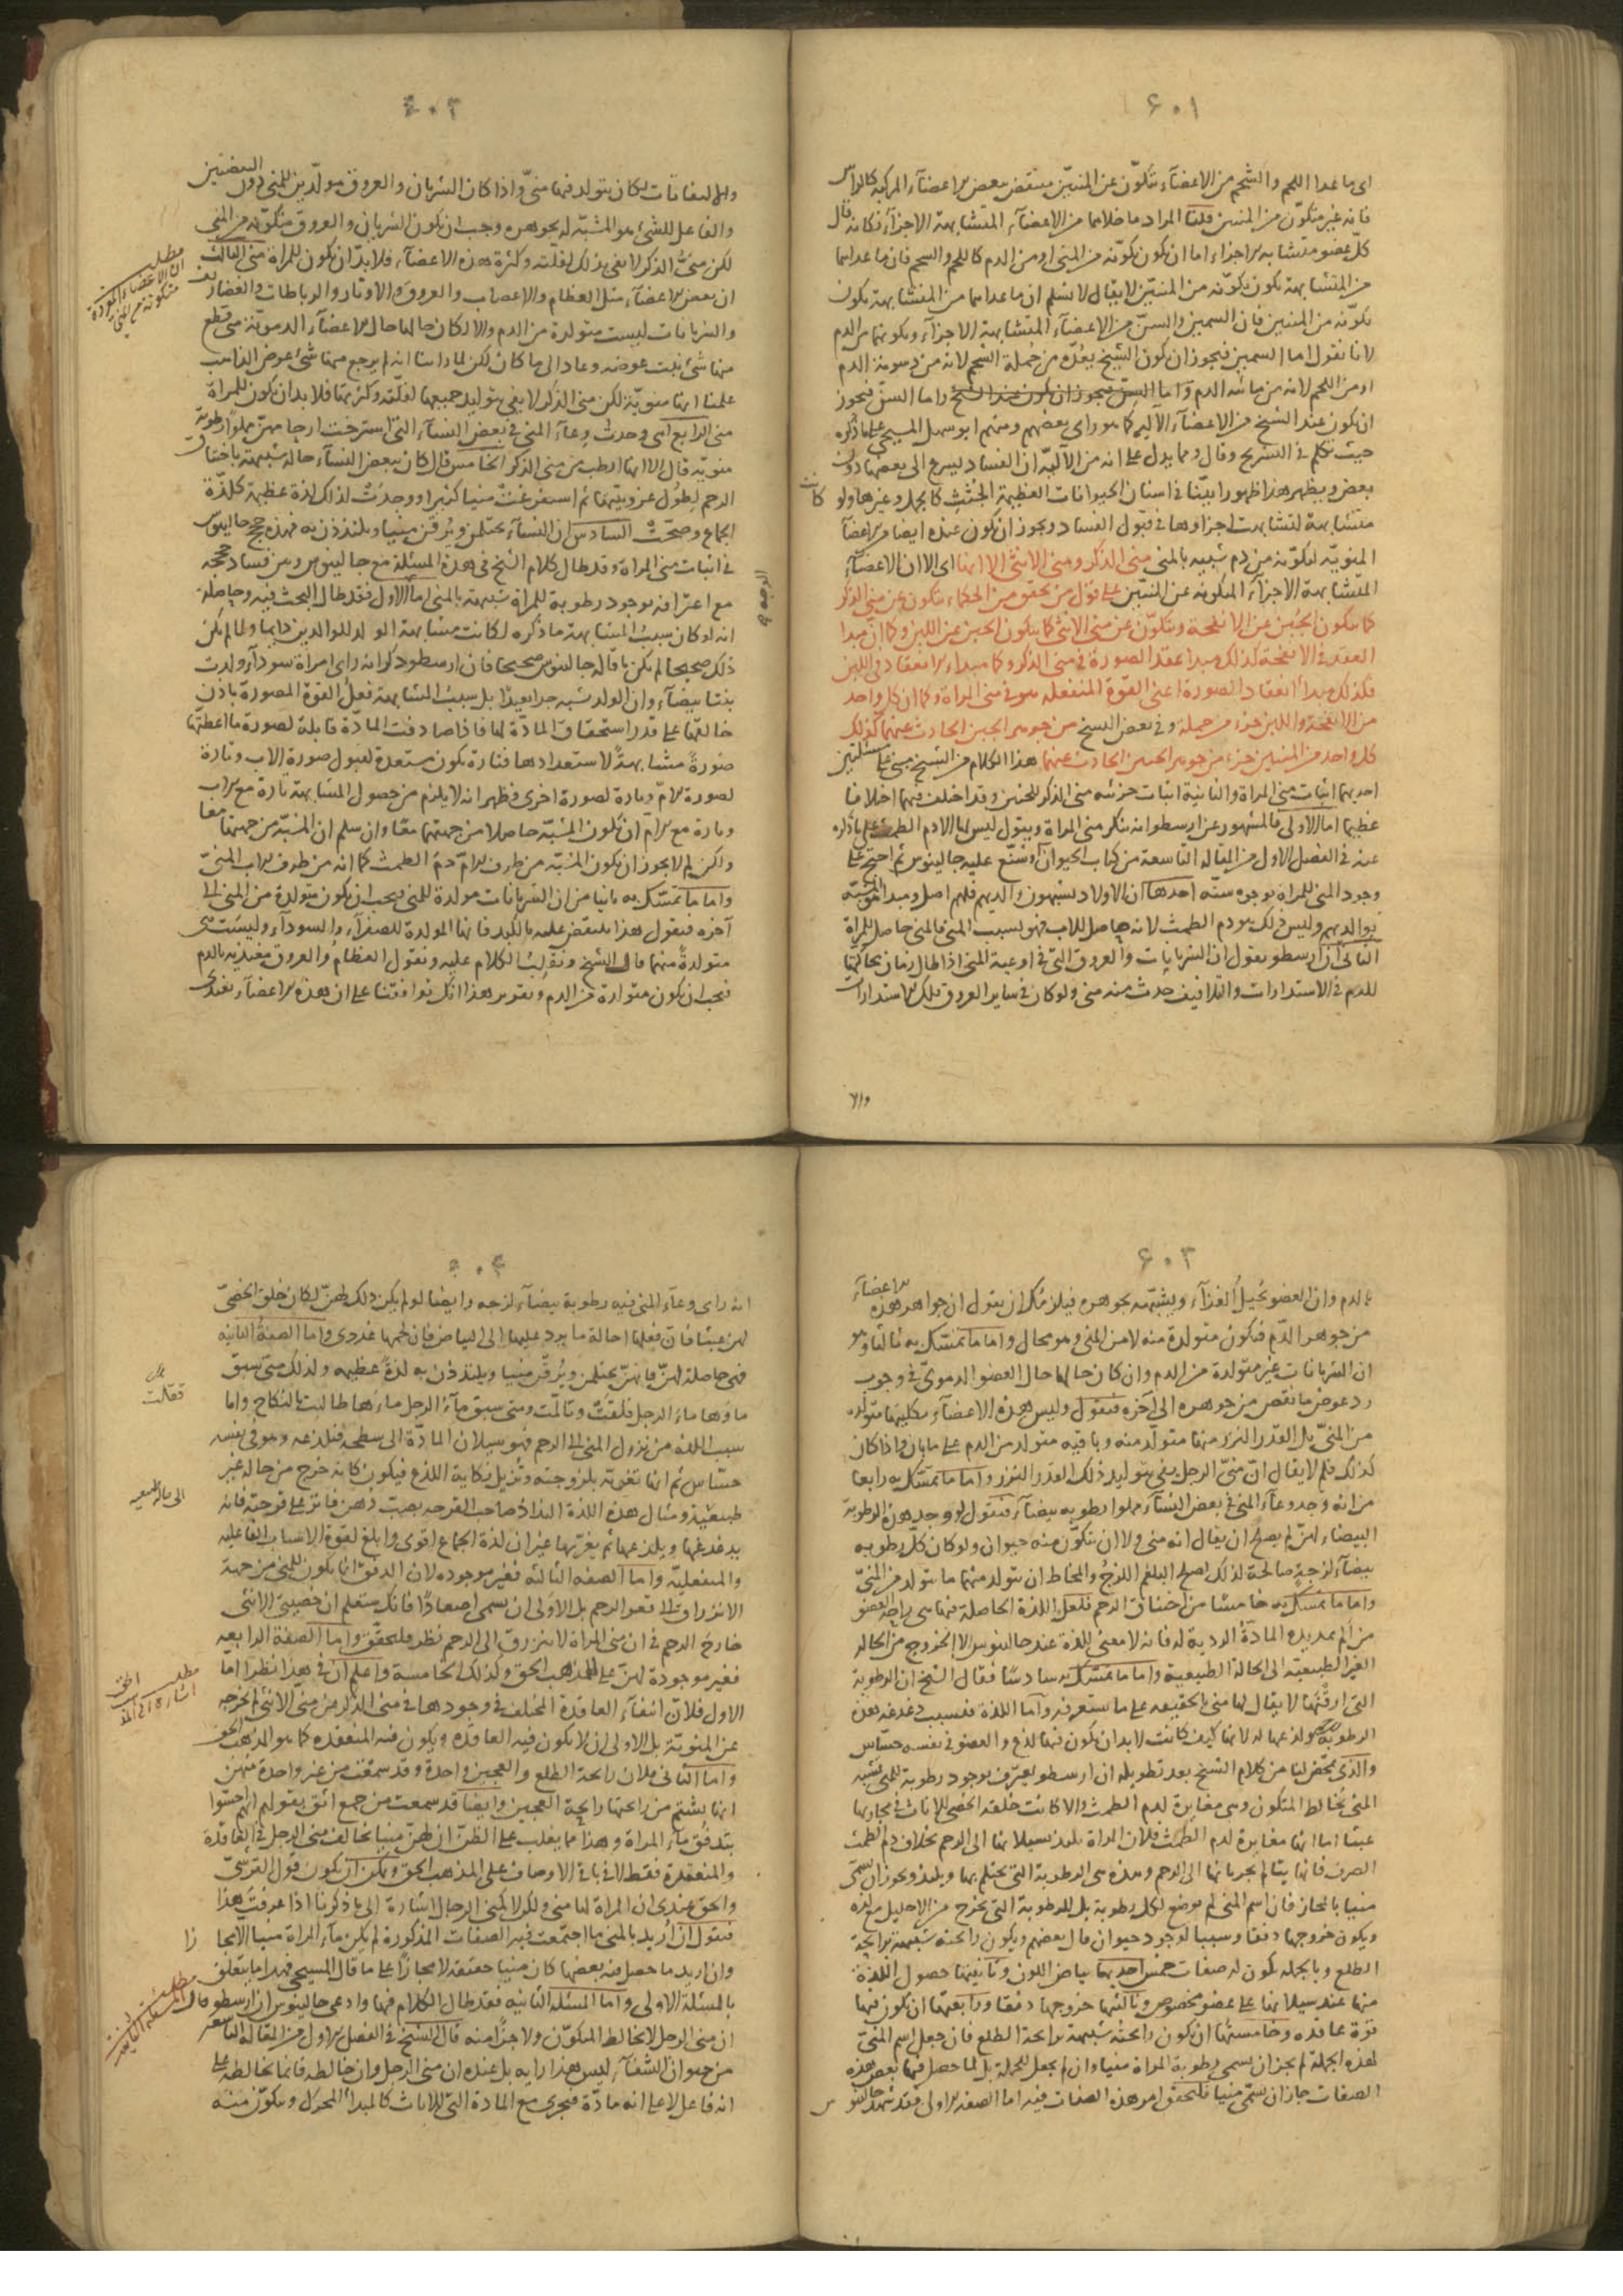 ٦٠١
اى ما عدا اللحم والشحم من الاعضآء تتكوّن عن المنيّين منتقض ببعض الاعضآء المركبة كالراس
فانه غير متكوّن من المنيين قلنا المراد ما خلاهما من الاعضآء المتشابهة الاجزآء فكانه قال
كلّ عضو متشابه الاجزاء اما ان يكون تكوّنه من المنى او من الدم كاللحم والشحم فان ما عداهما
من المتشابهة يكون تكوّنه من المنيين لا يقال لا نسلم ان ما عداهما من المتشابهة يكون
تكوّنه من المنيين فان السمين والسنّ من الاعضآء المتشابهة الاجزآء وتكونهما من الدم
لانا نقول اما السمين فيجوز ان يكون الشيخ يعدّه من جملة الشحم لانه من دسومة الدم
او من اللحم لانه من مائية الدم واما السنّ فيجوز
ان يكون عند الشيخ من الاعضآء الآلية كما هو راى بعضهم ومنهم ابو سهل المسيحى على ما ذكره
حيث تكلم فى التشريح وقال ومما يدل على انه من الآليّة ان الفساد يسرع الى بعضها دون
بعض ويظهر هذا ظهورا بيّنا فى اسنان الحيوانات العظيمة الجثث كالجمل وغيرها ولو كانت
متشابهة لتشابهت اجزاوها فى قبول الفساد ويجوز ان يكون عنده ايضا من الاعضآء
المنويّة لتكوّنه من دم شبيه بالمنى منى الذكر ومنى الانثى الا انها اى الا ان الاعضآء
المتشابهة الاجزآء المتكونة عن المنيّين على قول من تحقق من الحكماء تتكون عن منى الذكر
كما يتكون الجبن عن الانفحة ويتكوّن عن منى الانثى كما يتكون الجبن من اللبن وكما ان مبدا
العقد فى الانفحة كذلك مبدا عقد الصورة فى منى الذكر وكما مبداء الانعقاد فى اللبن
فكذلك مبدأ انعقاد الصورة اعنى القوة المنفعلة هو فى منى المراة وكما ان كل واحد
من الانفحة واللبن جزء من جملة وفى بعض النسخ من جوهر الجبن الحادث عنهما كذلك
كل واحد من المنيين جزء من جوهر الجنين الحادث عنهما هذا الكلام من الشيخ مبنى على مسئلتين
احديهما اثبات منى المراة والثانية اثبات جزئية منى الذكر للجنين وقد اختلف فيهما اختلافا
عظيما اما الاولى فالمشهور عن ارسطو انه ينكر منى المراة ويقول ليس لها الا دم الطمث على ما ذكره
عنه فى الفصل الاول من المقالة التاسعة من كتاب الحيوان وشنّع عليه جالينوس ثم احتج على
وجود المنى للمراة بوجوه ستّة احدها ان الاولاد يشبهون والديهم فلهم اصل ومبدا المشبّه
بوالديهم وليس ذلك هو دم الطمث لانه حاصل للاب فهو بسبب المنى فالمنى حاصل للمراة
الثانى ان ارسطو يقول ان الشريانات والعروق التى فى اوعية المنى اذا طال زمان
للدم فى الاستدارات والتلافيف حدث منه منى ولو كان فى ساير العروق تلك الاستدارات
والا
٦٠٢
والالتفافات لكان يتولد فيها منىّ واذا كان الشريان والعروق مولّدين للمنى دون البيضتين
والفاعل للشئ هو المشبّه له بجوهره وجب ان يكون الشريان والعروق متكوّنه من المنى
لكن منىّ الذكر لا يفى بذلك لقلته وكثرة هذه الاعضآء فلا بدّ ان يكون للمراة منى الثالث
ان بعض الاعضآء مثل العظام والاعصاب والعروق والاوتار والرباطات والغضاريف
والشريانات ليست متولدة من الدم والا لكان حالها حال الاعضآء الدموية متى قطع
منها شئ نبت عوضه وعاد الى ما كان لكن لما راينا انه لم يرجع منها شئ عوض الذاهب
علمنا انها منويّة لكن منى الذكر لا يفى بتوليد جميعها لقلّته وكثرتها فلا بد ان يكون للمراة
منى الرابع انى وجدت وعآء المنى فى بعض النسآء التى استرخت ارحامهنّ مملوّا رطوبة
منويّة قال الا انها ارطب من منى الذكر الخامس قال كان ببعض النسآء حالة شبيهة باختناق
الرحم لطول عزوبتها ثم استفرغت منيا كثيرا ووجدت لذلك لذة عظيمة كلذّة
الجماع وصحّت السادس ان النسآء يحتلمن ويُرقن منيا ويلتذذن به فهذه حجج جالينوس
فى اثبات منى المراة وقد طال كلام الشيخ فى هذه المسئلة مع جالينوس وبين فساد حججه
مع اعترافه بوجود رطوبة للمراة شبيهة بالمنى اما الاول فقد طال البحث فيه وحاصله
انه لو كان سبب المشابهة ما ذكره لكانت مشابهة الولد للوالدين دايما ولما لم يكن
ذلك صحيحا لم يكن ما قاله جالينوس صحيحا فان ارسطو ذكر انه راى امراة سودآء ولدت
بنتا بيضآء وان الولد يشبه جدا بعيدا بل سبب المشابهة فعل القوة المصورة باذن
خالقها على قدر استحقاق المادّة لها فاذا صادفت المادّة قابلة لصورة ما اعطتها
صورةً متشابهةً لاستعدادها فتارة يكون مستعدة لقبول صورة الاب وتارة
لصورة الامّ وتارة لصورة اخرى فظهر انه لا يلزم من حصول المشابهة تارة مع الاب
وتارة مع الامّ ان تكون المشبّه حاصلا من جهتهما معا وان سلم ان المشبّه من جهتهما معا
ولكن لم لا يجوز ان يكون المشبّه من طرف الامّ دم الطمث كما انه من طرف الاب المنىّ
واما ما تمسّك به ثانيا من ان الشريانات مولدة للمنى فيجب ان يكون متولدة من المنى الى
آخره فنقول هذا منتقض عليه بالكبد فانها المولدة للصفرآء والسودآء وليست هى
متولدة منهما قال الشيخ ونقلب الكلام عليه ونقول العظام والعروق مغتذية بالدم
فيجب ان يكون متولدة من الدم وتقرير هذا انك توافقنا على ان هذه الاعضآء تغتذى
مطلب
ان الاعضاء المفردة
متكونة من المنى
٦٠٣
بالدم وان العضو يُحيل الغذآء ويشبّهه بجوهره فيلزمك ان يقول ان جواهر هذه الاعضآء
من جوهر الدّم فتكون متولدة منه لا من المنى وهو محال واما ما تمسّك به ثالثا وهو
ان الشريانات غير متولدة من الدم وان كان حالها حال العضو الدموىّ فى وجوب
رد عوض ما نقص من جوهره الى آخره فنقول وليس هذه الاعضآء بكليتها متولدة
من المنىّ بل القدر النزر منها متولّد منه وباقيه متولد من الدم على ما بان واذا كان
كذلك فلم لا يقال انّ منىّ الرجل يفى بتوليد ذلك القدر النزر واما ما تمسّك به رابعا
من انه وجد وعآء المنى فى بعض النسآء مملوا رطوبه بيضآء فنقول لو وجد هذه الرطوبة
البيضاء لهنّ لم يصلح ان يقال انه منى ولا ان يتكوّن منه حيوان ولو كان كلّ رطوبه
بيضآء لزجةٍ صالحة لذلك لصلح البلغم اللزج والمخاط ان يتولد منهما ما يتولد من المنىّ
واما ما تمسّك به خامسًا من اختناق الرحم فلعل اللذة الحاصلة فيها هى راحة العضو
من الم تمديد المادّة الردية له فانه لا معنى للذة عند جالينوس الا الخروج من الحالة
الغير الطبيعية الى الحالة الطبيعية واما ما تمسّك به سادسًا فقال الشيخ ان الرطوبة
التى ارقنها لا يقال لها منى بالحقيقه على ما ستعرفه واما اللذة فبسبب دغدغة هذه
الرطوبة ولذعها له لانها كيف كانت لا بد ان يكون فيها لذع والعضو فى نفسه حسّاس
والذى تمخّض لنا من كلام الشيخ بعد تطويله ان ارسطو يعترف بوجود رطوبة للمنى تشبه
المنى تخالط المتكون وهى مغايرة لدم الطمث والا كانت خلقة الخصى للاناث فى مجاريها
عبثا اما انها مغايرة لدم الطمث فلان المراة يلتذ بسيلانها الى الرحم بخلاف دم الطمث
الصرف فانها يتالم بجريانها الى الرحم وهذه هى الرطوبة التى يحتلم بها ويلتذ ويجوز ان يسمّى
منيا بالمجاز فان اسم المنى لم يوضع لكل رطوبة بل للرطوبة التى يخرج من الاحليل مع لذة
ويكون خروجها دفقا وسببا لوجود حيوان قال بعضهم ويكون رائحته شبيهة برايحة
الطلع وبالجملة يكون له صفات خمس احديها بياض اللون وثانيتها حصول اللذة
منها عند سيلانها على عضو مخصوص وثالثتها خروجها دفقا ورابعتها ان يكون فيها
قوة عاقدة وخامستها ان يكون رائحته شبيهة برايحة الطلع فان جعل اسم المنىّ
لهذه الجملة لم يجز ان يسمى رطوبة المراة منيا وان لم يجعل للجملة بل لما حصل فيها بعض هذه
الصفات جاز ان يسمّى منيا فلنحقق امر هذه الصفات فيه اما الصفة الاولى فقد شهد جالينوس
٦٠٤
انه راى وعآء المنى فيه رطوبة بيضآء لزجه وايضا لو لم يكن ذلك لهنّ لكان خلق الخصىّ
لهنّ عبثا فان فعلها احالة ما يرد عليها الى البياض فان لحمها غددى واما الصفة الثانية
فهى حاصلة لهنّ فانهنّ يحتلمن ويُرقن منيا ويلتذذن به لذةً عظيمه ولذلك متى سبق
ماوها ماء الرجل قلقت وتالّمت ومتى سبق مآء الرجل ماءها طالبت بالنكاح واما
سبب اللذة من نزول المنى الى الرحم فهو سيلان المادّة الى سطحه فتلذعه وهو فى نفسه
حسّاس ثم انها تغريّه بلزوجته وتزيل نكاية اللذع فيكون كانه خرج من حالة غير
طبيعية ومثال هذه اللذة التذاذ صاحب القرحة بصب دهن فاتر على قرحته فانه
يدغدغها ويلذعها ثم يغرّيها غير ان لذة الجماع اقوى وابلغ لقوة الاسباب الفاعلية
والمنفعليّة واما الصفة الثالثة فغير موجوده لان الدفق انما يكون للمنى من جهة
الانزراق الى قعر الرحم بل الاولى ان يسمى اصعادًا فانك ستعلم ان خصيتى الانثى
خارج الرحم فى ان منى المراة لا ينزرق الى الرحم نظر فليحقق واما الصفة الرابعة
فغير موجودة لهنّ على المذهب الحق وكذلك الخامسة واعلم ان فى هذا نظرا اما
الاول فلان انتفآء العاقدة المختلف فى وجودها فى منى الذكر عن منى الانثى لا يخرجه
عن المنويّة بل الاولى ان لا يكون فيه العاقده ويكون فيه المنعقده كما هو المذهب الحق
واما الثانى فلان رائحة الطلع والعجين واحدة وقد سمعت من غير واحدة منهنّ
انها يشتم من رائحتها رايحة العجين وايضا قد سمعت من جمع اثق بقولهم انهم احسّوا
بتدفق مآء المراة وهذا مما يغلب على الظنّ ان لهنّ منيا يخالف منى الرجل فى العاقدة
والمنعقدة فقط لا فى باقى الاوصاف على المذهب الحق ويمكن ان يكون قول القرشىّ
والحق عندى ان المراة لها منى ولكن لا كمنى الرجال اشارة الى ما ذكرنا اذا عرفت هذا
فنقول ان اريد بالمنى ما اجتمعت فيه الصفات المذكورة لم يكن مآء المراة منيا الا مجازا
وان اريد ما حصل فيه بعضها كان منيا حقيقة لا مجازًا على ما قال المسيحى فهذا ما يتعلق
بالمسئلة الاولى واما المسئلة الثانية فقد طال الكلام فيها وادعى جالينوس ان ارسطو قال
ان منى الرجل لا يخالط المتكوّن ولا جزًا منه قال الشيخ فى الفصل الاول من المقالة التاسعة
من حيوان الشفآء ليس هذا رايه بل عنده ان منى الرجل وان خالطه فانما يخالطه على
انه فاعل لا على انه مادّة فيجرى مع المادة التى للاناث كالمبدأ المحرك ويتكوّن منه
فقالت
الى الطبيعيه
مطلب الحق
مطلب